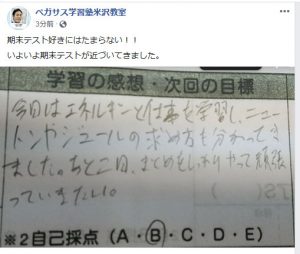 ペガサス学習塾米沢教室
3分前
期末テスト好きにはたまらない！！
いよいよ期末テストが近づいてきました。
学習の感想・次回の目標
今日はエネルギーと仕事を学習し、ニュー
トンやジュールの求め方も分かってき
ました。あと二日、まとめをしっかりやって頑張
っていきたい。
※2自己採点（A・B・C・D・E）